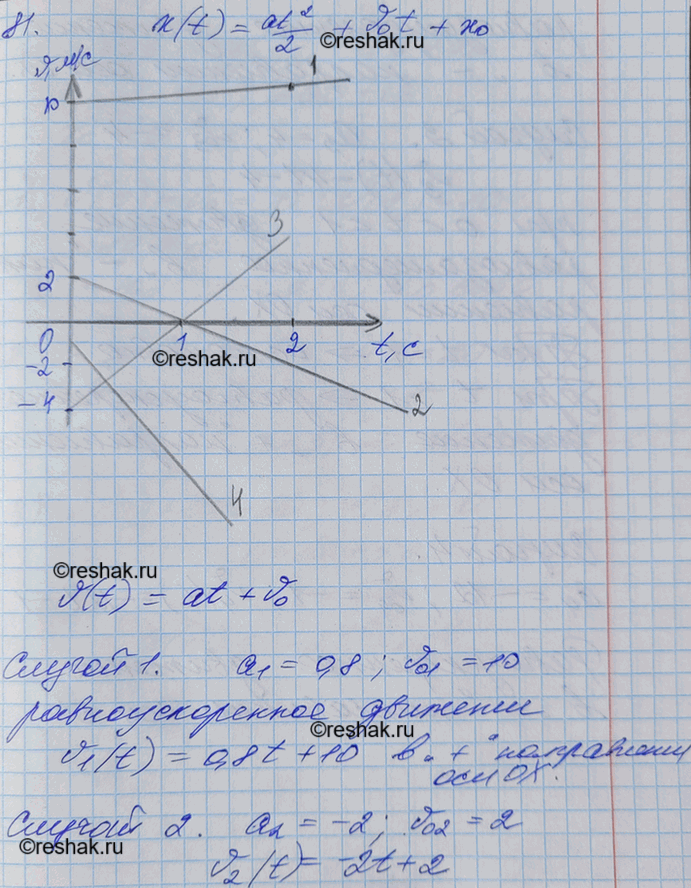 81. x(t) = at²/2 + v₀t + x₀
©reshak.ru
v, м/с
1
10
3
2
0
1
2
t, с
©reshak.ru
-2
-4
2
4
©reshak.ru
v(t) = at + v₀
Случай 1. a₁ = 0,8; v₀₁ = 10
равноускоренное движении
©reshak.ru
v₁(t) = 0,8t + 10 в „+" направлении
оси OX.
Случай 2. a₂ = -2; v₀₂ = 2
©reshak.ru
v₂(t) = -2t + 2